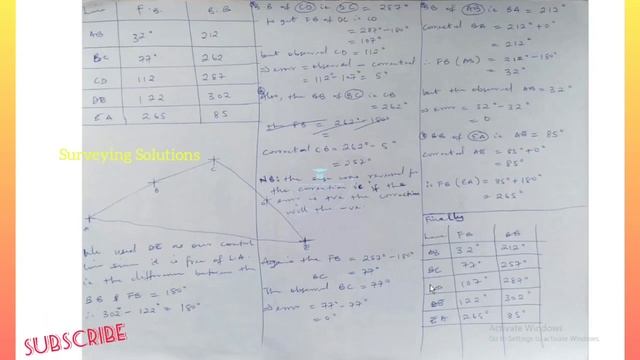 Line F.B. B.B
AB 32° 212
BC 77° 262
CD 112 287
DE 122 302
EA 265 85
Surveying Solutions
A
B
C
E
We used DE as our control
line since it is free of L.A.
ie the difference between the
BB & FB = 180°
∴ 302° - 122° = 180°
SUBSCRIBE
BB of CD is DC = 287°
to get FB of DC is CD
= 287° - 180°
= 107°
but observed CD = 112°
⇒ error = observed - corrected
= 112° - 107° = 5°
Also, the BB of BC is CB
= 262°
FB = 262° - 180
=
Corrected CB = 262° - 5°
= 257°
NB: the sign was reversed for
the correction ie if the
error is +ve the correction
will the -ve.
Again the FB = 257° - 180°
BC = 77°
The observed BC = 77°
⇒ error = 77° - 77°
= 0°
BB of AB is BA = 212°
Corrected BA = 212° + 0°
= 212°
∴ FB (AB) = 212° - 180°
= 32°
but the observed AB = 32°
⇒ error = 32° - 32°
= 0
BB of EA is AE = 85°
Corrected AE = 85° + 0°
= 85°
∴ FB (EA) = 85° + 180°
= 265°
Finally
Line FB BB
AB 32° 212°
BC 77° 257°
CD 107° 287°
DE 122° 302°
EA 265° 85°
Activate Windows
Go to Settings to activate Windows.